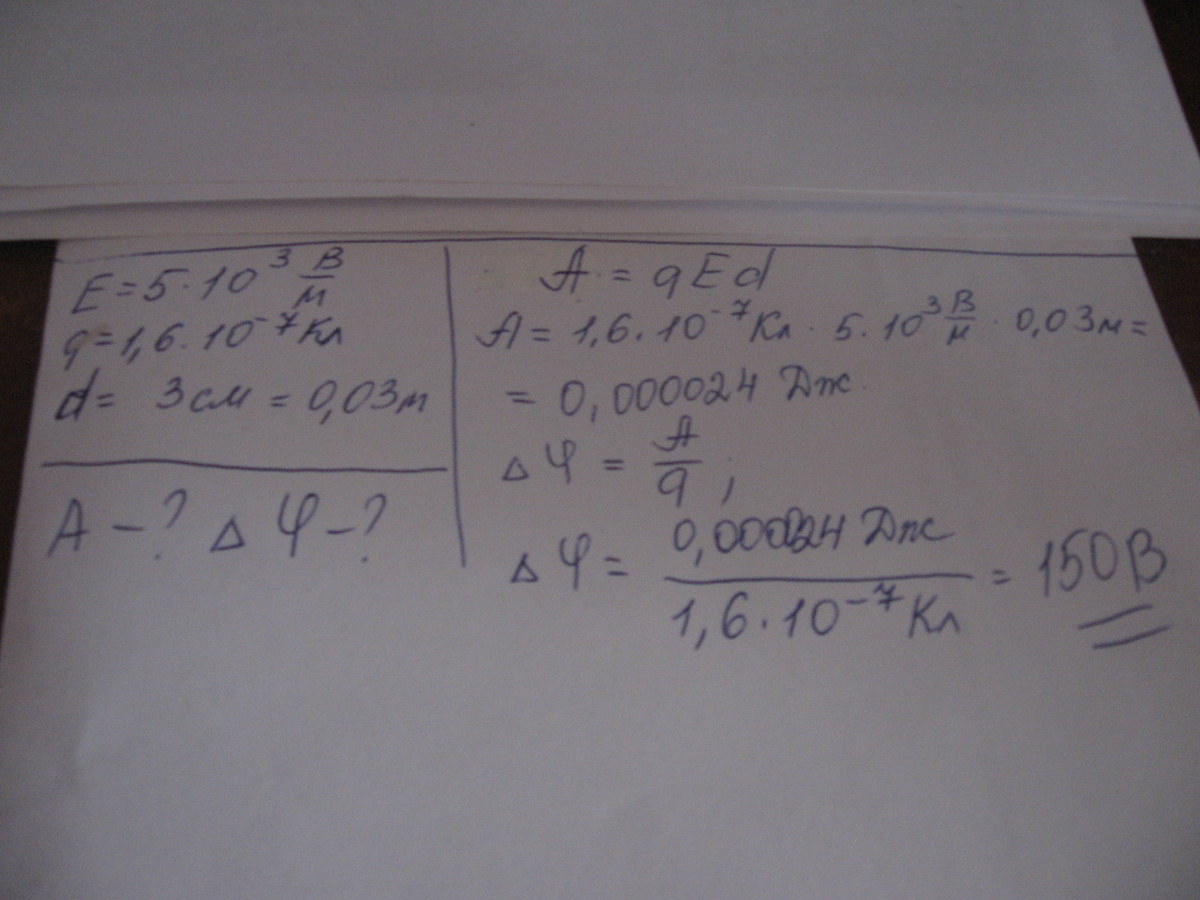 E = 5 · 10³ В/м
q = 1,6 · 10⁻⁷ Кл
d = 3 см = 0,03 м
A – ? Δφ – ?
A = qEd
A = 1,6 · 10⁻⁷ Кл · 5 · 10³ В/м · 0,03 м =
= 0,000024 Дж
Δφ = A/q ;
Δφ = 0,000024 Дж / 1,6 · 10⁻⁷ Кл = 150 В